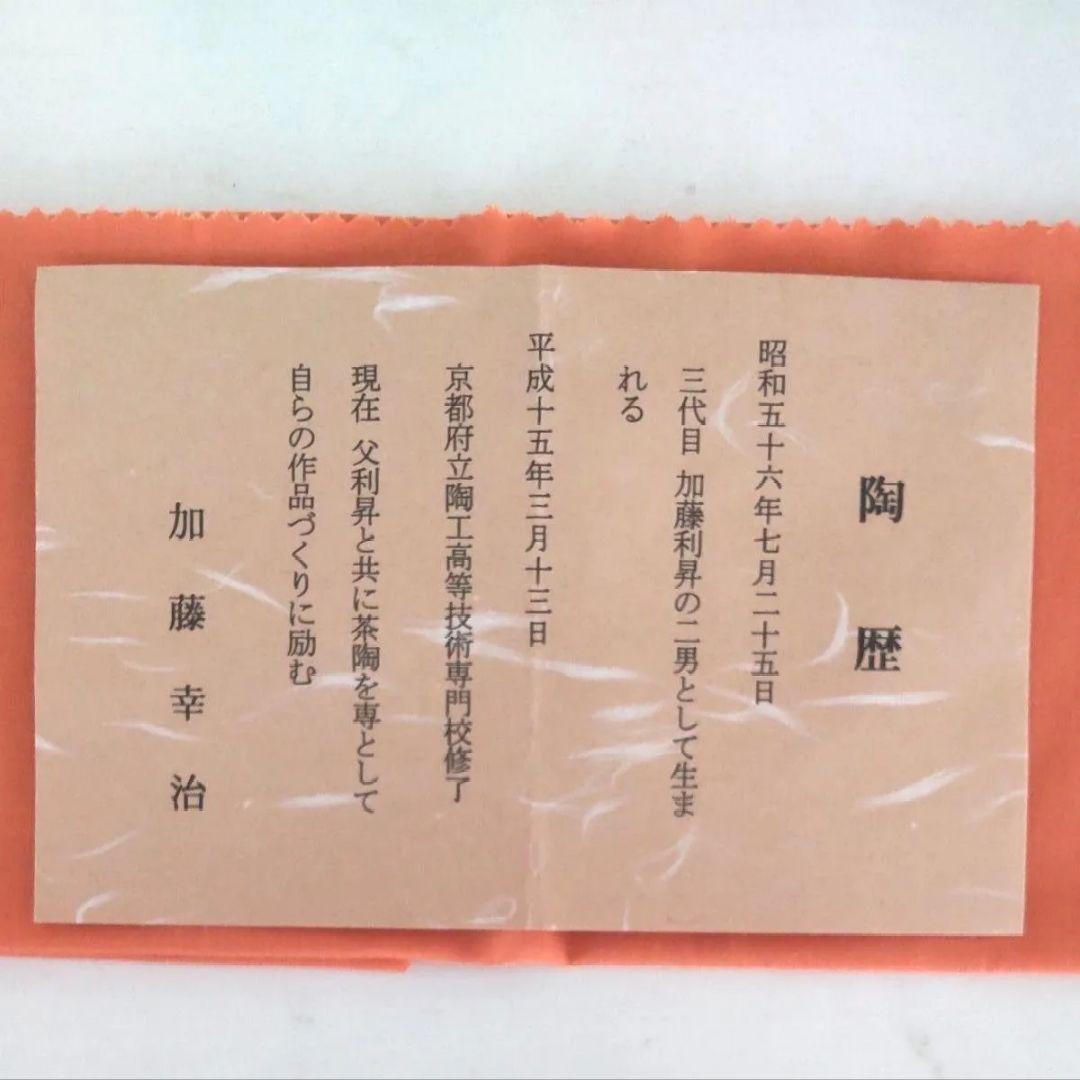 陶歴
昭和五十六年七月二十五日
三代目 加藤利昇の二男として生ま
れる
平成十五年三月十三日
京都府立陶工高等技術専門校修了
現在 父利昇と共に茶陶を専として
自らの作品づくりに励む
加藤幸治